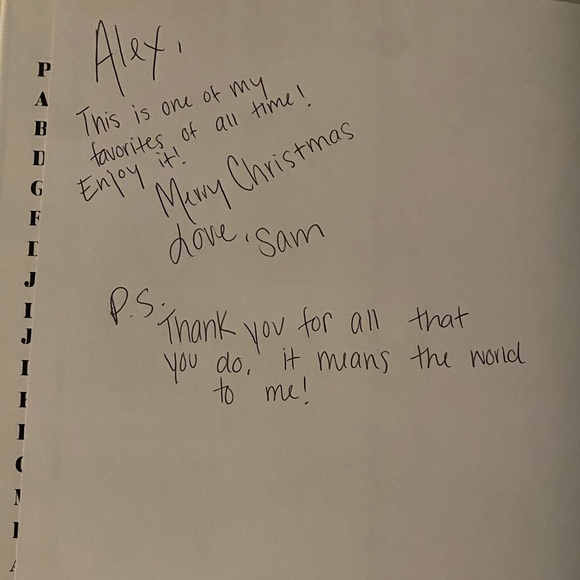 Alex,
This is one of my
favorites of all time!
Enjoy it!
Merry Christmas
Love, Sam
P.S.
Thank you for all that
you do, it means the world
to me!
P
A
B
D
G
F
J
I
J